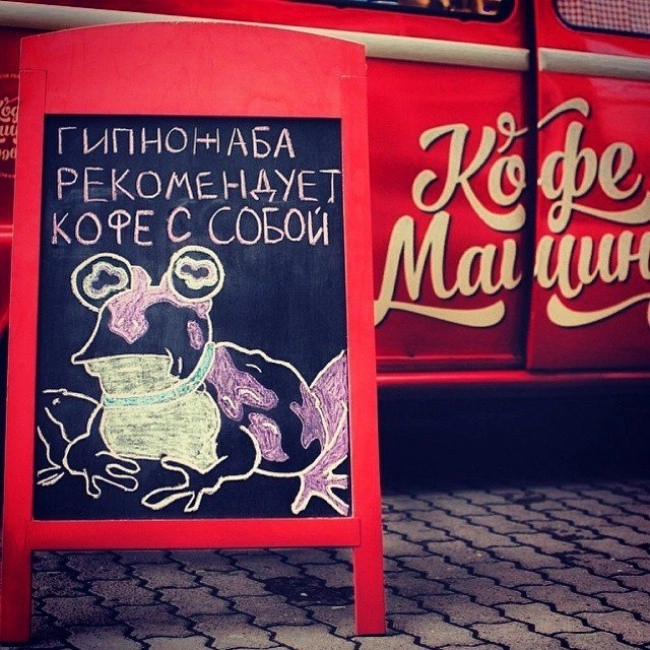 ГИПНОЖАБА
РЕКОМЕНДУЕТ
КОФЕ С СОБОЙ
Кофе
Машин